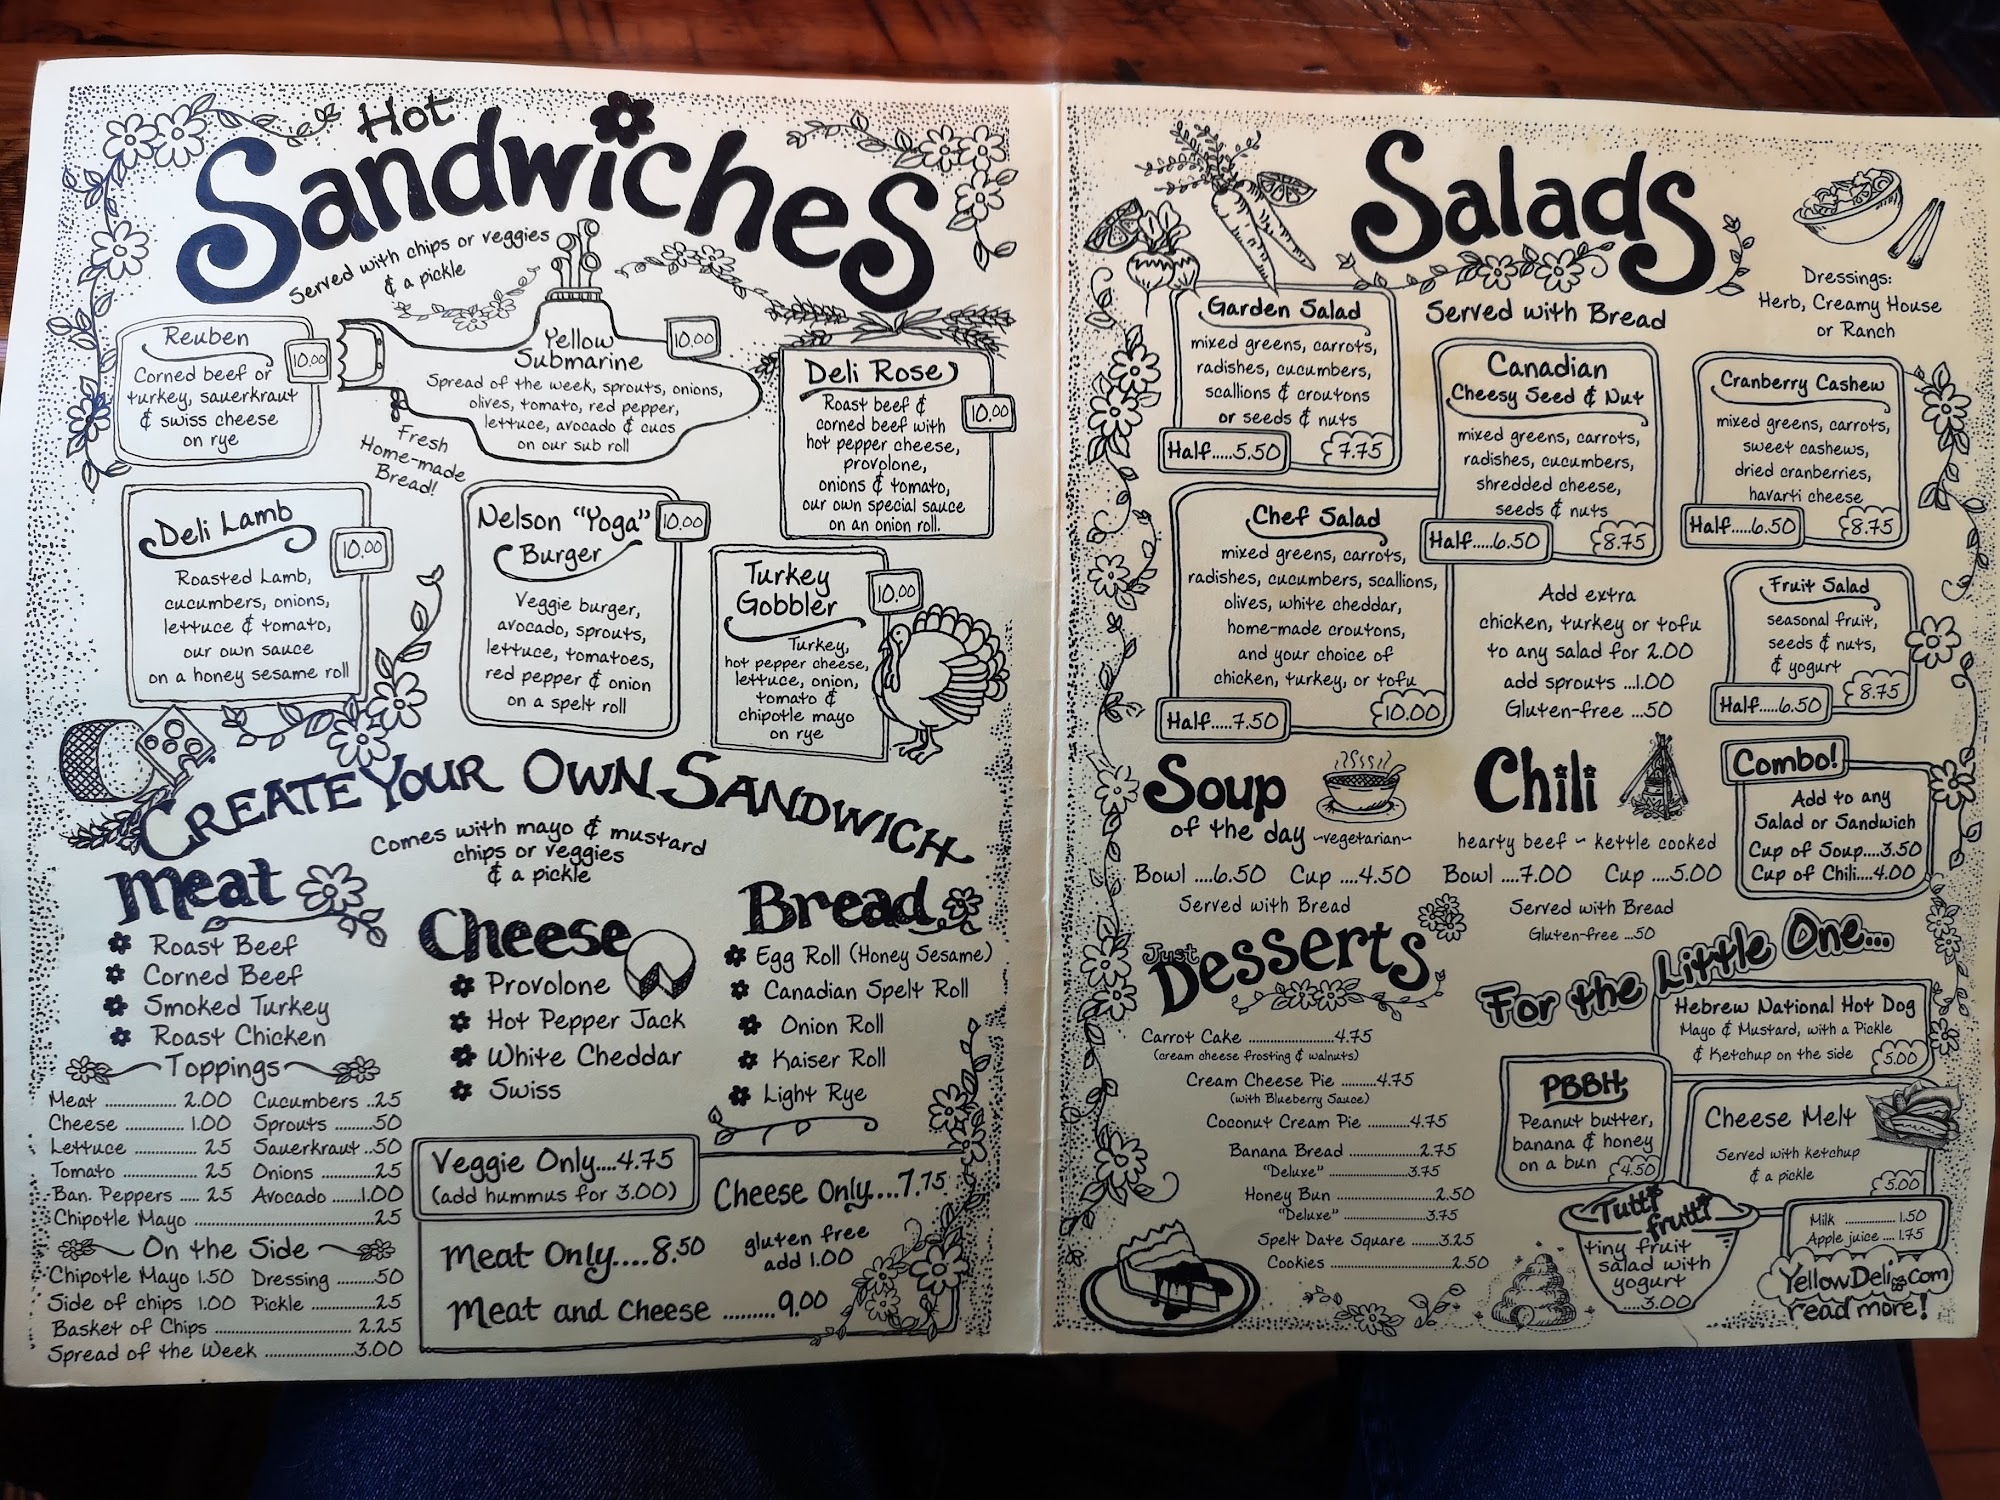 Hot
Sandwiches
Served with chips or veggies
& a pickle
Reuben
10.00
Corned beef or
turkey, sauerkraut
& swiss cheese
on rye
Yellow
Submarine
10.00
Spread of the week, sprouts, onions,
olives, tomato, red pepper,
lettuce, avocado & cucs
on our sub roll
Fresh
Home-made
Bread!
Deli Rose
10.00
Roast beef &
corned beef with
hot pepper cheese,
provolone,
onions & tomato,
our own special sauce
on an onion roll.
Deli Lamb
10.00
Roasted Lamb,
cucumbers, onions,
lettuce & tomato,
our own sauce
on a honey sesame roll
Nelson "Yoga"
Burger
10.00
Veggie burger,
avocado, sprouts,
lettuce, tomatoes,
red pepper & onion
on a spelt roll
Turkey
Gobbler
10.00
Turkey,
hot pepper cheese,
lettuce, onion,
tomato &
chipotle mayo
on rye
CREATE YOUR OWN SANDWICH
Comes with mayo & mustard
chips or veggies
& a pickle
Meat
Roast Beef
Corned Beef
Smoked Turkey
Roast Chicken
Cheese
Provolone
Hot Pepper Jack
White Cheddar
Swiss
Bread
Egg Roll (Honey Sesame)
Canadian Spelt Roll
Onion Roll
Kaiser Roll
Light Rye
Toppings
Meat ................ 2.00 Cucumbers ..25
Cheese ............. 1.00 Sprouts .......50
Lettuce ............. 25 Sauerkraut ..50
Tomato ............. 25 Onions ..........25
Ban. Peppers .... 25 Avocado ......1.00
Chipotle Mayo ...............................25
On the Side
Chipotle Mayo 1.50 Dressing ........50
Side of chips 1.00 Pickle .............25
Basket of Chips ......................... 2.25
Spread of the Week ...................3.00
Veggie Only....4.75
(add hummus for 3.00)
Cheese Only....7.75
Meat Only....8.50
gluten free
add 1.00
Meat and Cheese .........9.00
Salads
Served with Bread
Dressings:
Herb, Creamy House
or Ranch
Garden Salad
mixed greens, carrots,
radishes, cucumbers,
scallions & croutons
or seeds & nuts
Half.....5.50
7.75
Canadian
Cheesy Seed & Nut
mixed greens, carrots,
radishes, cucumbers,
shredded cheese,
seeds & nuts
Half.....6.50
8.75
Cranberry Cashew
mixed greens, carrots,
sweet cashews,
dried cranberries,
havarti cheese
Half.....6.50
8.75
Chef Salad
mixed greens, carrots,
radishes, cucumbers, scallions,
olives, white cheddar,
home-made croutons,
and your choice of
chicken, turkey, or tofu
Half.....7.50
10.00
Add extra
chicken, turkey or tofu
to any salad for 2.00
add sprouts ...1.00
Gluten-free ...50
Fruit Salad
seasonal fruit,
seeds & nuts,
& yogurt
Half.....6.50
8.75
Soup
of the day ~vegetarian~
Bowl ....6.50 Cup ....4.50
Served with Bread
Chili
hearty beef ~ kettle cooked
Bowl ....7.00 Cup ....5.00
Served with Bread
Gluten-free ...50
Combo!
Add to any
Salad or Sandwich
Cup of Soup....3.50
Cup of Chili....4.00
Just
Desserts
Carrot Cake .....................4.75
(cream cheese frosting & walnuts)
Cream Cheese Pie .........4.75
(with Blueberry Sauce)
Coconut Cream Pie ..........4.75
Banana Bread ..................2.75
"Deluxe" ......................3.75
Honey Bun .......................2.50
"Deluxe" ........................3.75
Spelt Date Square .......3.25
Cookies ...........................2.50
For the Little One...
Hebrew National Hot Dog
Mayo & Mustard, with a Pickle
& Ketchup on the side
5.00
PBBH
Peanut butter,
banana & honey
on a bun
4.50
Cheese Melt
Served with ketchup
& a pickle
5.00
Tutti
frutti
tiny fruit
salad with
yogurt
....3.00
Milk .............. 1.50
Apple juice .... 1.75
YellowDeli.com
read more!